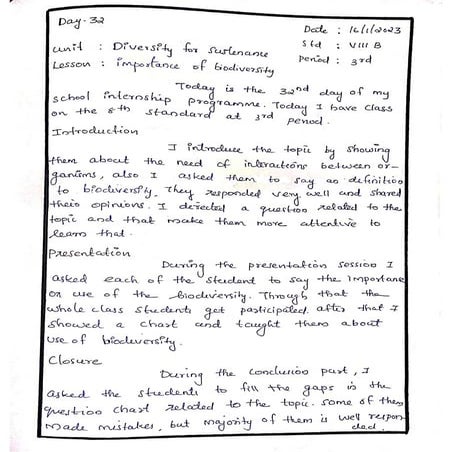 Day-32
Date : 16/1/2023
Std : VIII B
Period : 3rd
Unit : Diversity for Sustenance
Lesson : importance of biodiversity
Today is the 32nd day of my
school internship programme. Today I have class
on the 8th standard at 3rd period.
Introduction
I introduce the topic by showing
them about the need of interactions between or-
ganisms, also I asked them to say as definition
to biodiversity. They responded very well and shared
their opinions. I directed a question related to the
topic and that make them more attentive to
learn that.
Presentation
During the presentation session I
asked each of the student to say the importance
or use of the biodiversity. Through that the
whole class students get participated. after that I
showed a chart and taught them about
use of biodiversity.
Closure
During the conclusion part, I
asked the students to fill the gaps in the
question chart related to the topic. some of them
made mistakes, but majority of them is well respon
ded.